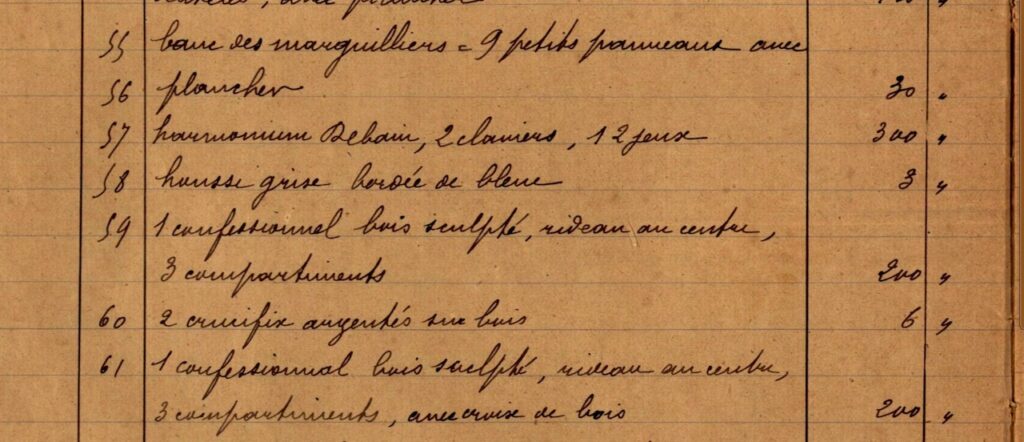 plancher
55 banc des marguilliers = 9 petits panneaux avec
56 plancher 30 "
57 harmonium Debain, 2 claviers, 12 jeux 300 "
58 housse grise bordée de bleue 3 "
59 1 confessionnel bois sculpté, rideau au centre,
3 compartiments 200 "
60 2 crucifix argentés sur bois 6 "
61 1 confessionnal bois sculpté, rideau au centre,
3 compartiments, avec croix de bois 200 "